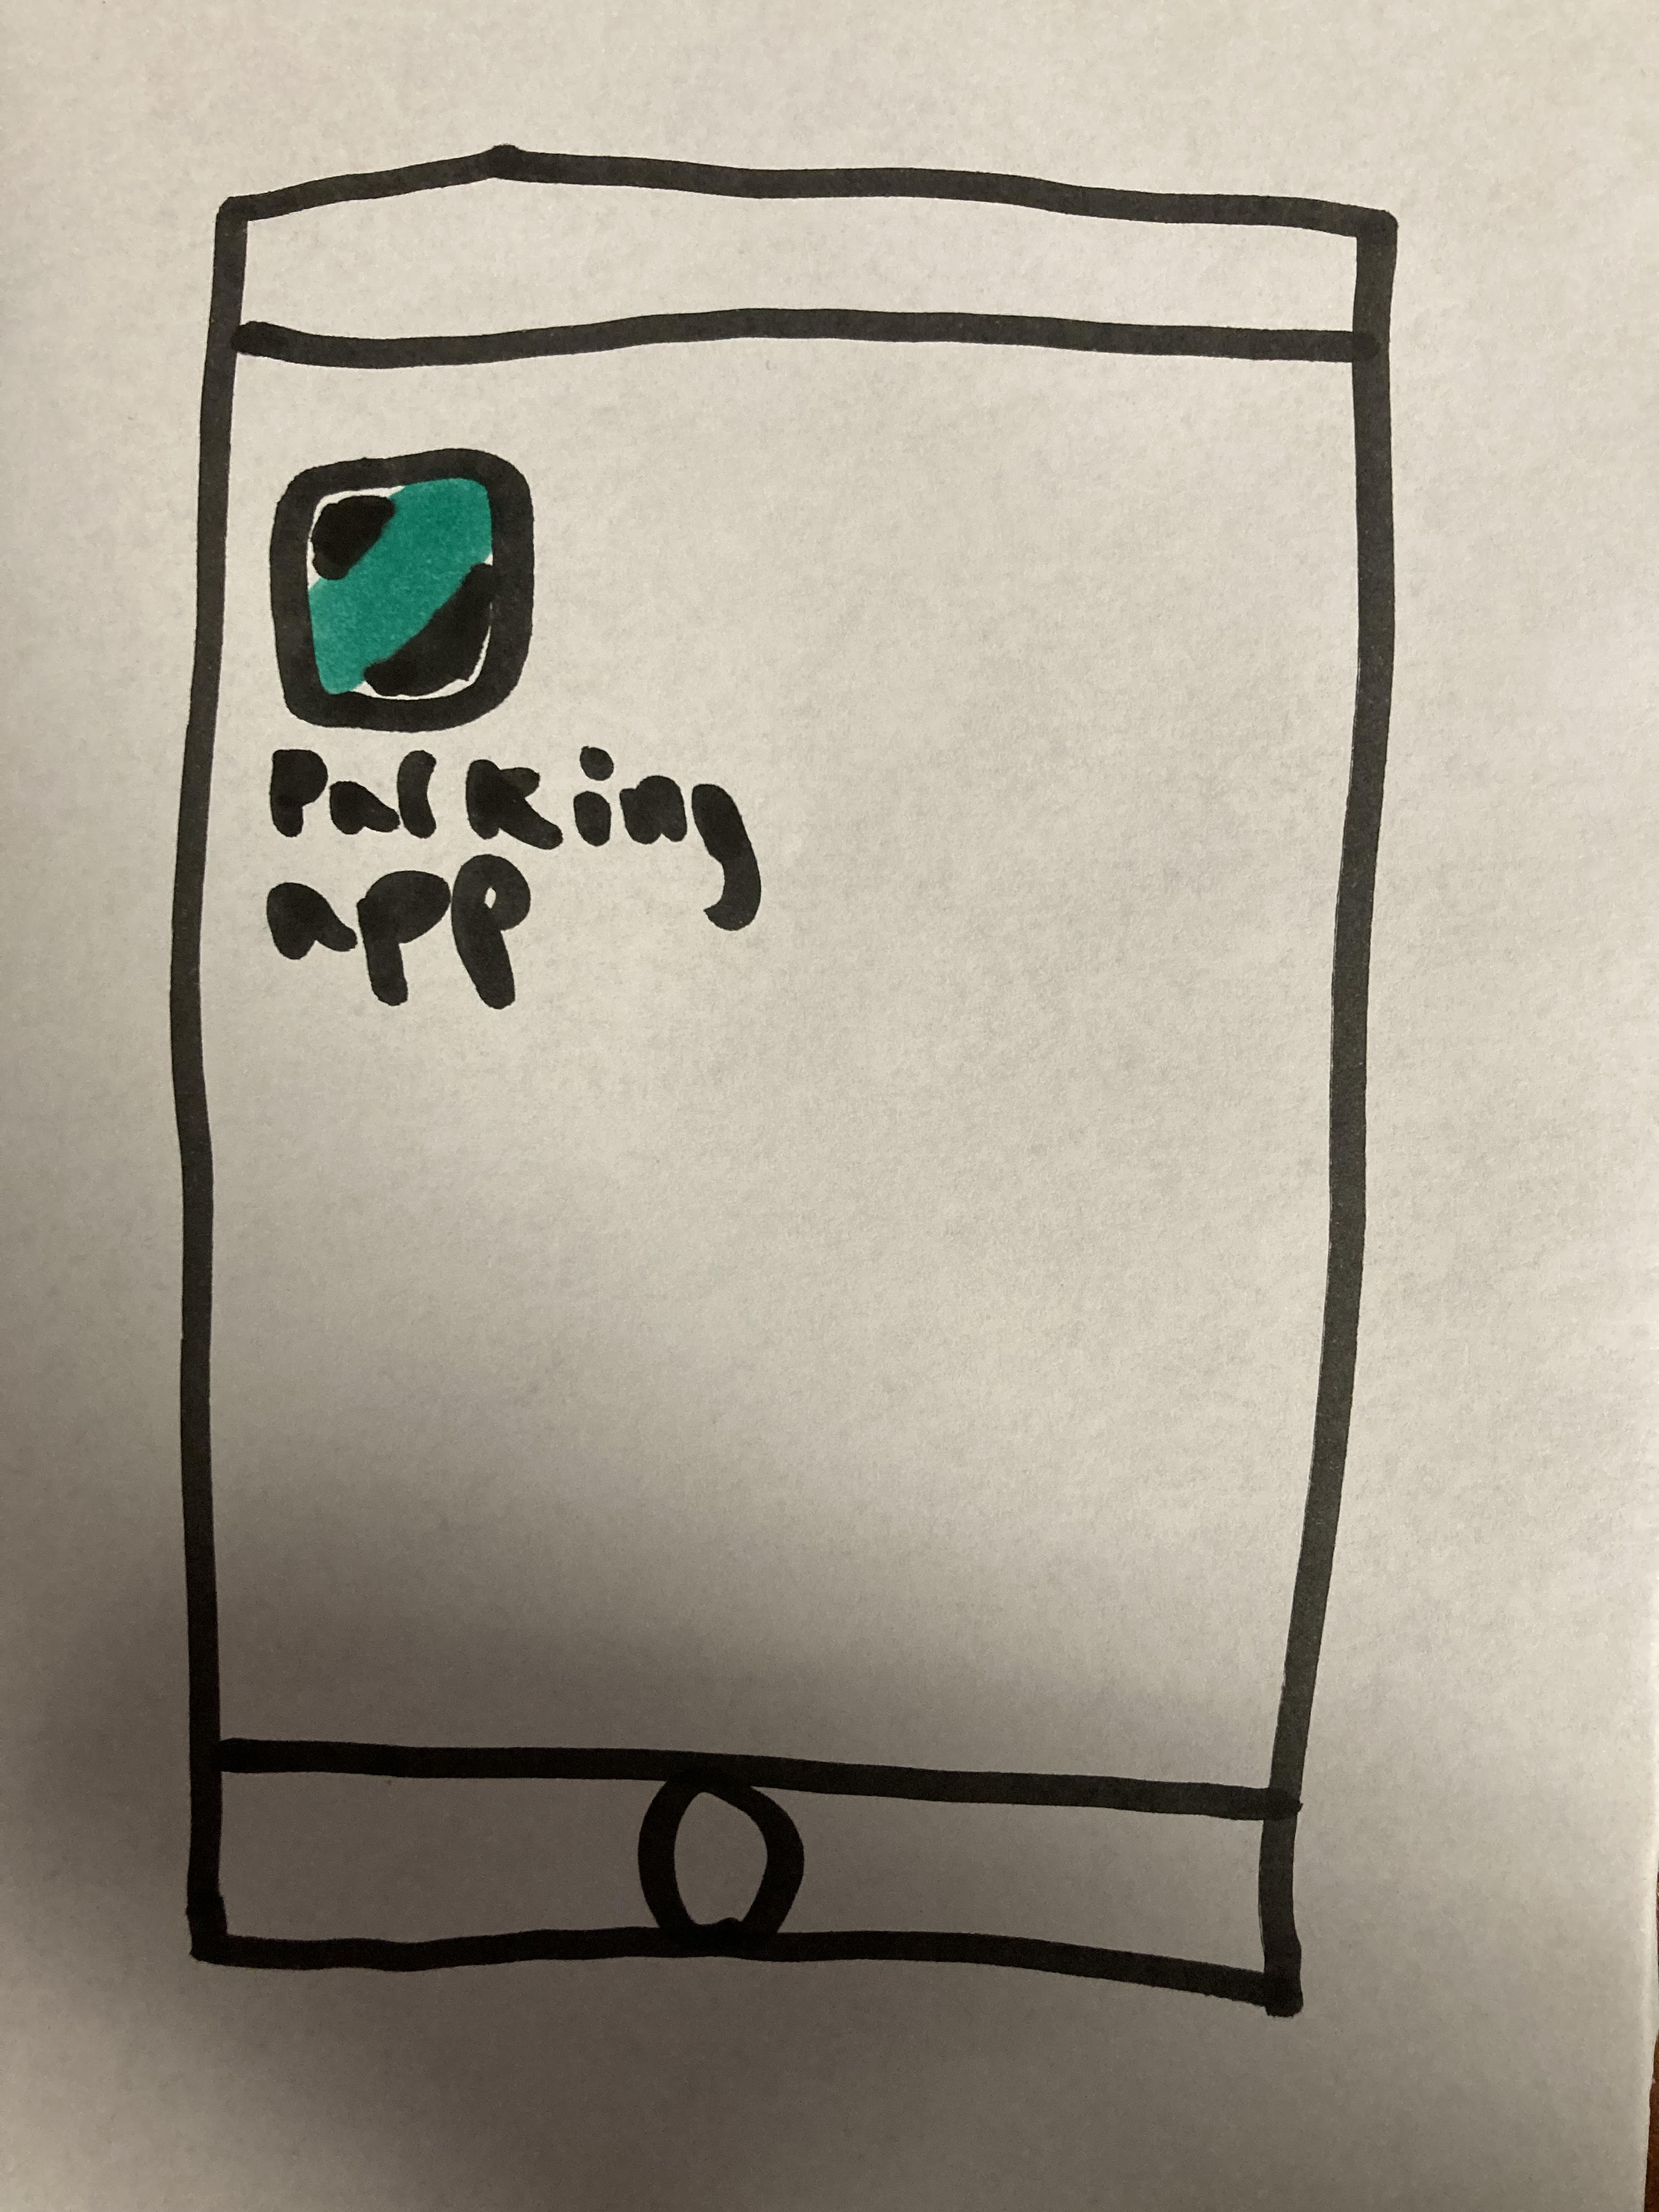 Parking
app